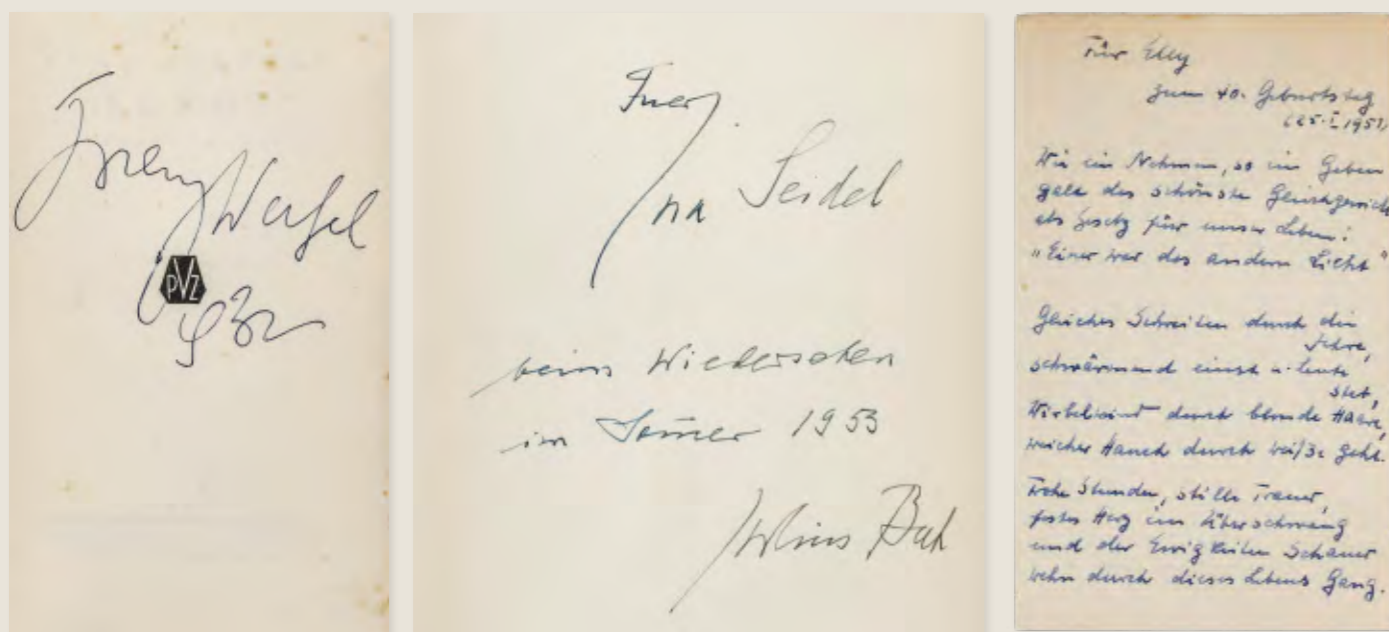 Franz Werfel
PVZ
932
Fuer
Ina Seidel
beim Wiedersehen
im Som̄er 1953
Julius Bab
Für Elly
zum 40. Geburtstag
(25. I 1951)
Wie ein Nehmen, so ein Geben
galt das schönste Gleichgewicht
als Gesetz für unser Leben:
"Einer war des andern Licht"
Gleiches Schreiten durch die
Jahre,
schwärmend einst u. heute
stet,
Wirbelwind durch blonde Haare,
weicher Hauch durch weiße geht.
Frohe Stunden, stille Trauer,
festes Herz im Überschwang
und der Ewigkeiten Schauer
wehn durch dieses Lebens Gang.